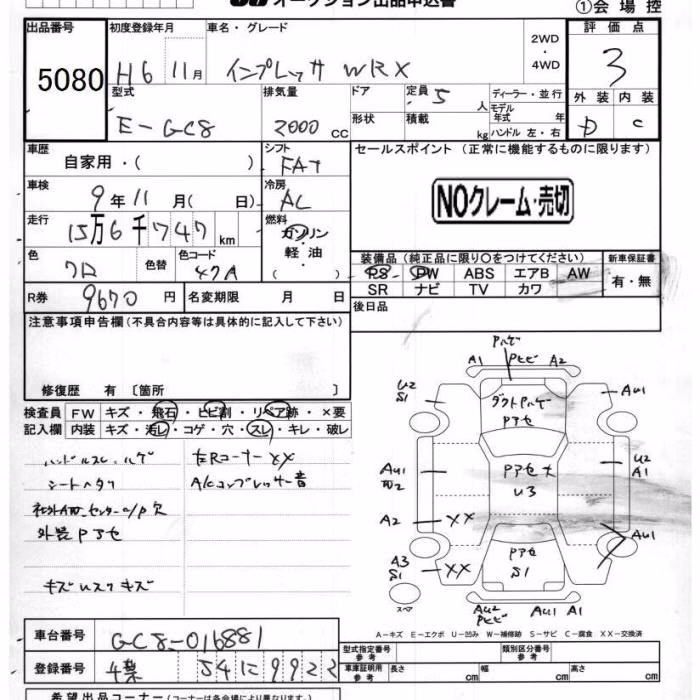 オークション出品申込書
①会場控
出品番号 初度登録年月 車名・グレード 2WD・4WD 評価点
5080 H6 11月 インプレッサ WRX 3
型式 排気量 ドア 定員 5人 ディーラー・並行 外装 内装
E-GC8 2000cc 形状 積載 kg モデル年式 年 ハンドル 左・右 D C
車歴 シフト セールスポイント (正常に機能するものに限ります)
自家用・( ) FAT
車検 冷房
9年11月( 日) AC NOクレーム・売切
走行 燃料
15万6千747km ガソリン・軽油 ( )
装備品(純正品に限り○をつけてください) 新車保証書
色 色替 色コード PS PW ABS エアB AW 有・無
クロ 47A SR ナビ TV カワ
R券 9670円 名変期限 月 日 後日品
注意事項申告欄(不具合内容等は具体的に記入して下さい)
修復歴 有〔箇所 〕
検査員 FW キズ・飛石・ヒビ割・リペア跡・×要
記入欄 内装 キズ・汚レ・コゲ・穴・スレ・キレ・破レ
ハンドルスレ、ハゲ 左Rコーナー××
シートヘタリ A/Cコンプレッサー音
社外AW センターC/P欠
外装Pアセ
キズUスリキズ
Pハゲ
A1 Pヒビ A2
U2 S1 Au1
ダクトPハゲ
Pアセ
Au1 Pアセ大 U2
U3 A1
A2 ×× Au1
A3 Pアセ
S1 ×× S1
スペア Au2 Au1 A1
Pヒビ
A-キズ E-エクボ U-凹み W-補修跡 S-サビ C-腐食 XX-交換済
車台番号 GC8-016881 型式指定番号 参考 類別区分番号 参考
登録番号 千葉 54に9922 車庫証明用 参考 長さ cm 幅 cm 高さ cm
希望出品コーナー(コーナーは各会場により異なります。)